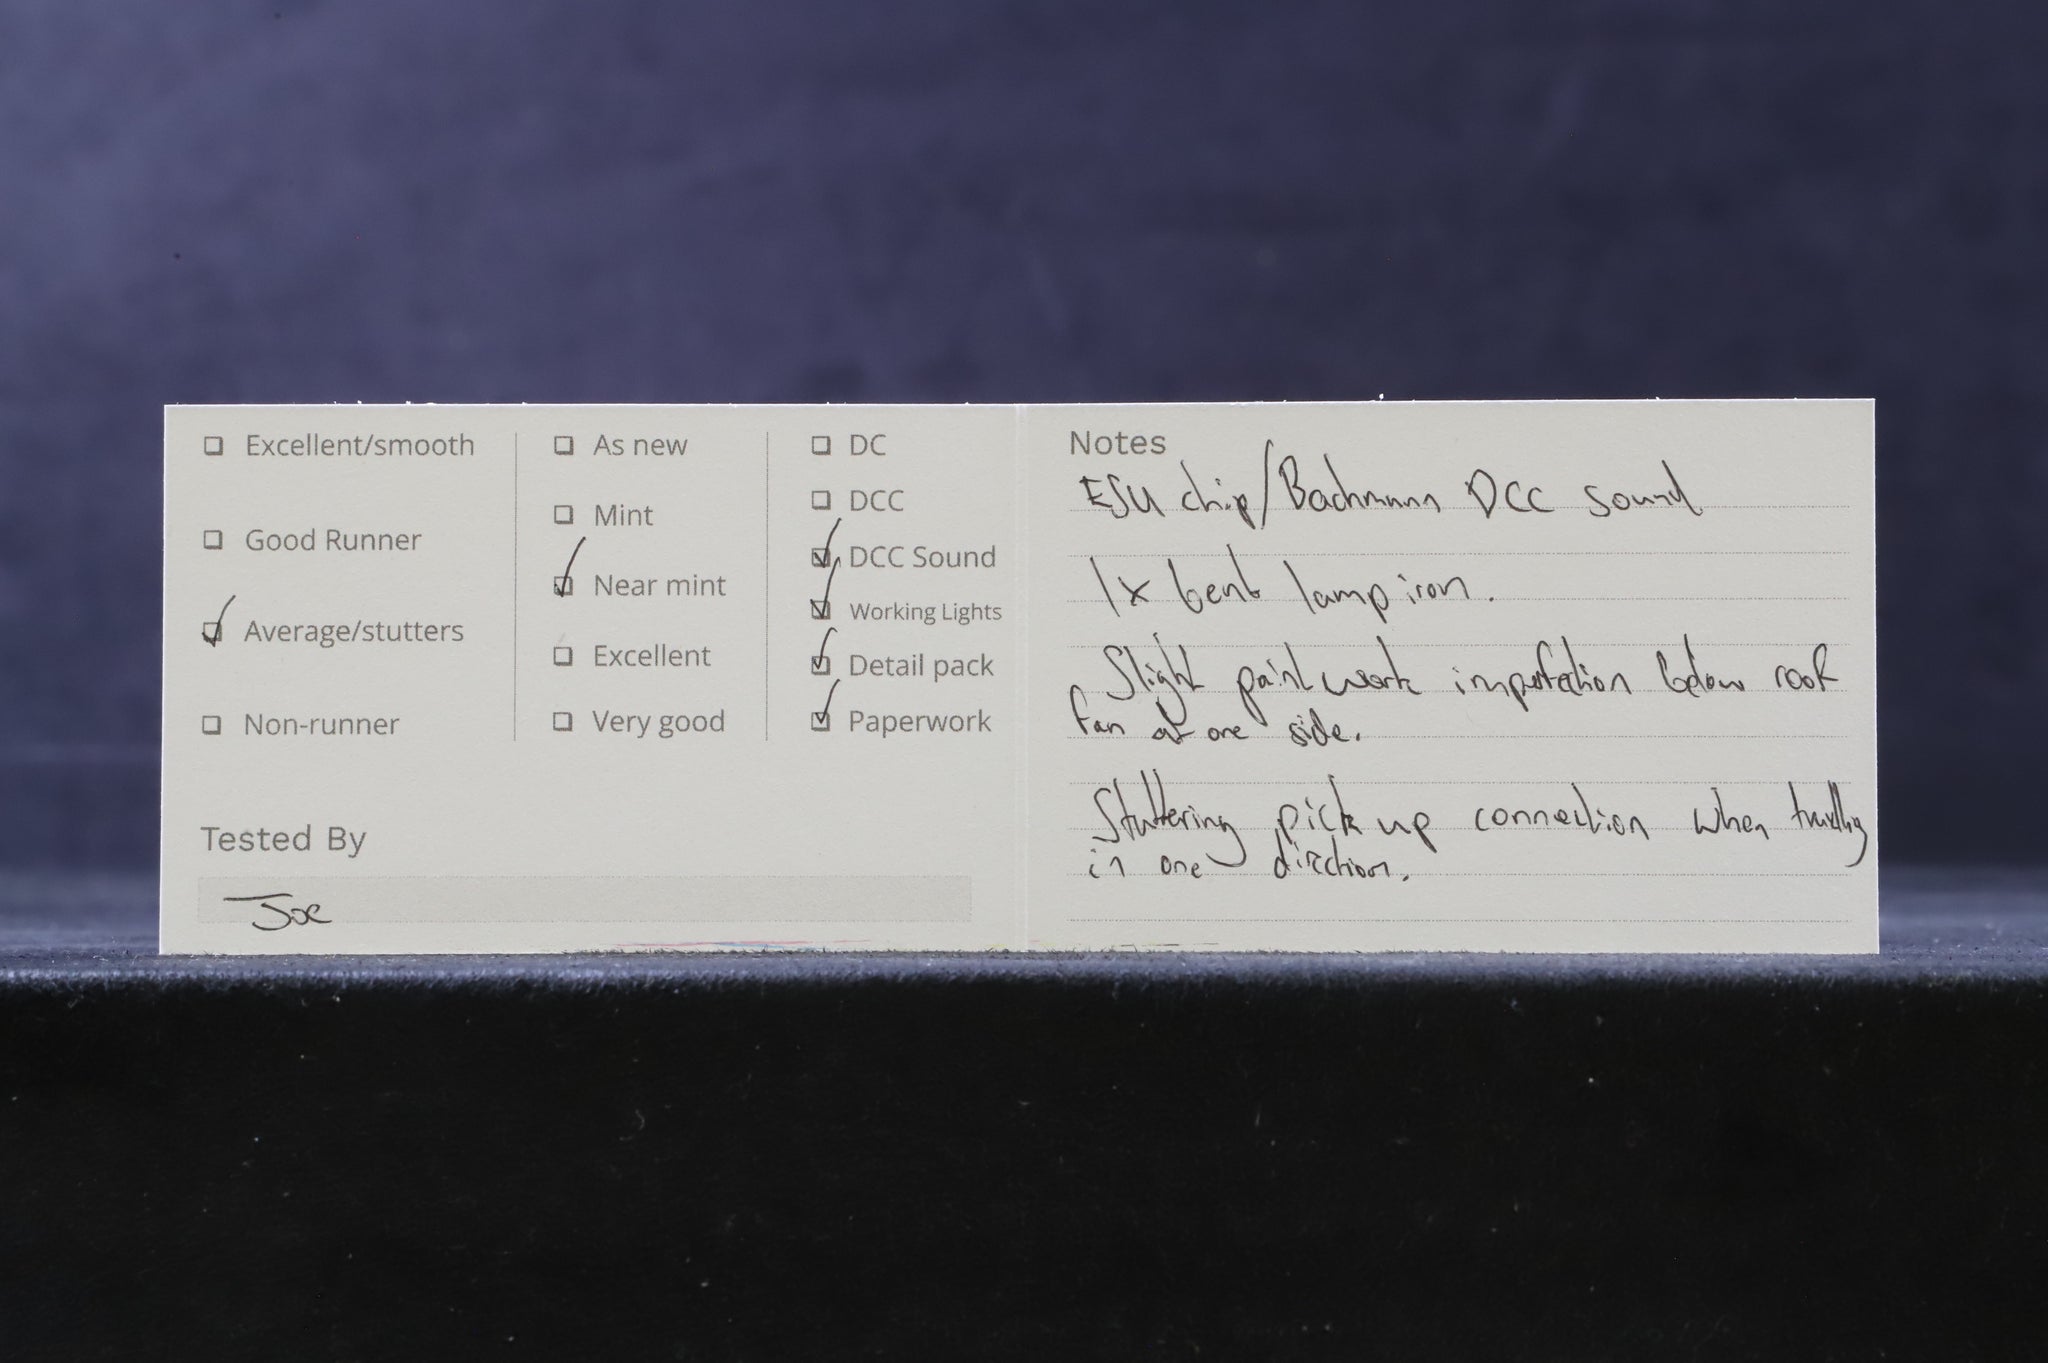 Excellent/smooth
Good Runner
Average/stutters
Non-runner
As new
Mint
Near mint
Excellent
Very good
DC
DCC
DCC Sound
Working Lights
Detail pack
Paperwork
Tested By
Joe
Notes
ESU chip/Bachmann DCC sound
1x bent lamp iron.
Slight paintwork imperfection below roof
fan at one side.
Stuttering pick up connection when travelling
in one direction.